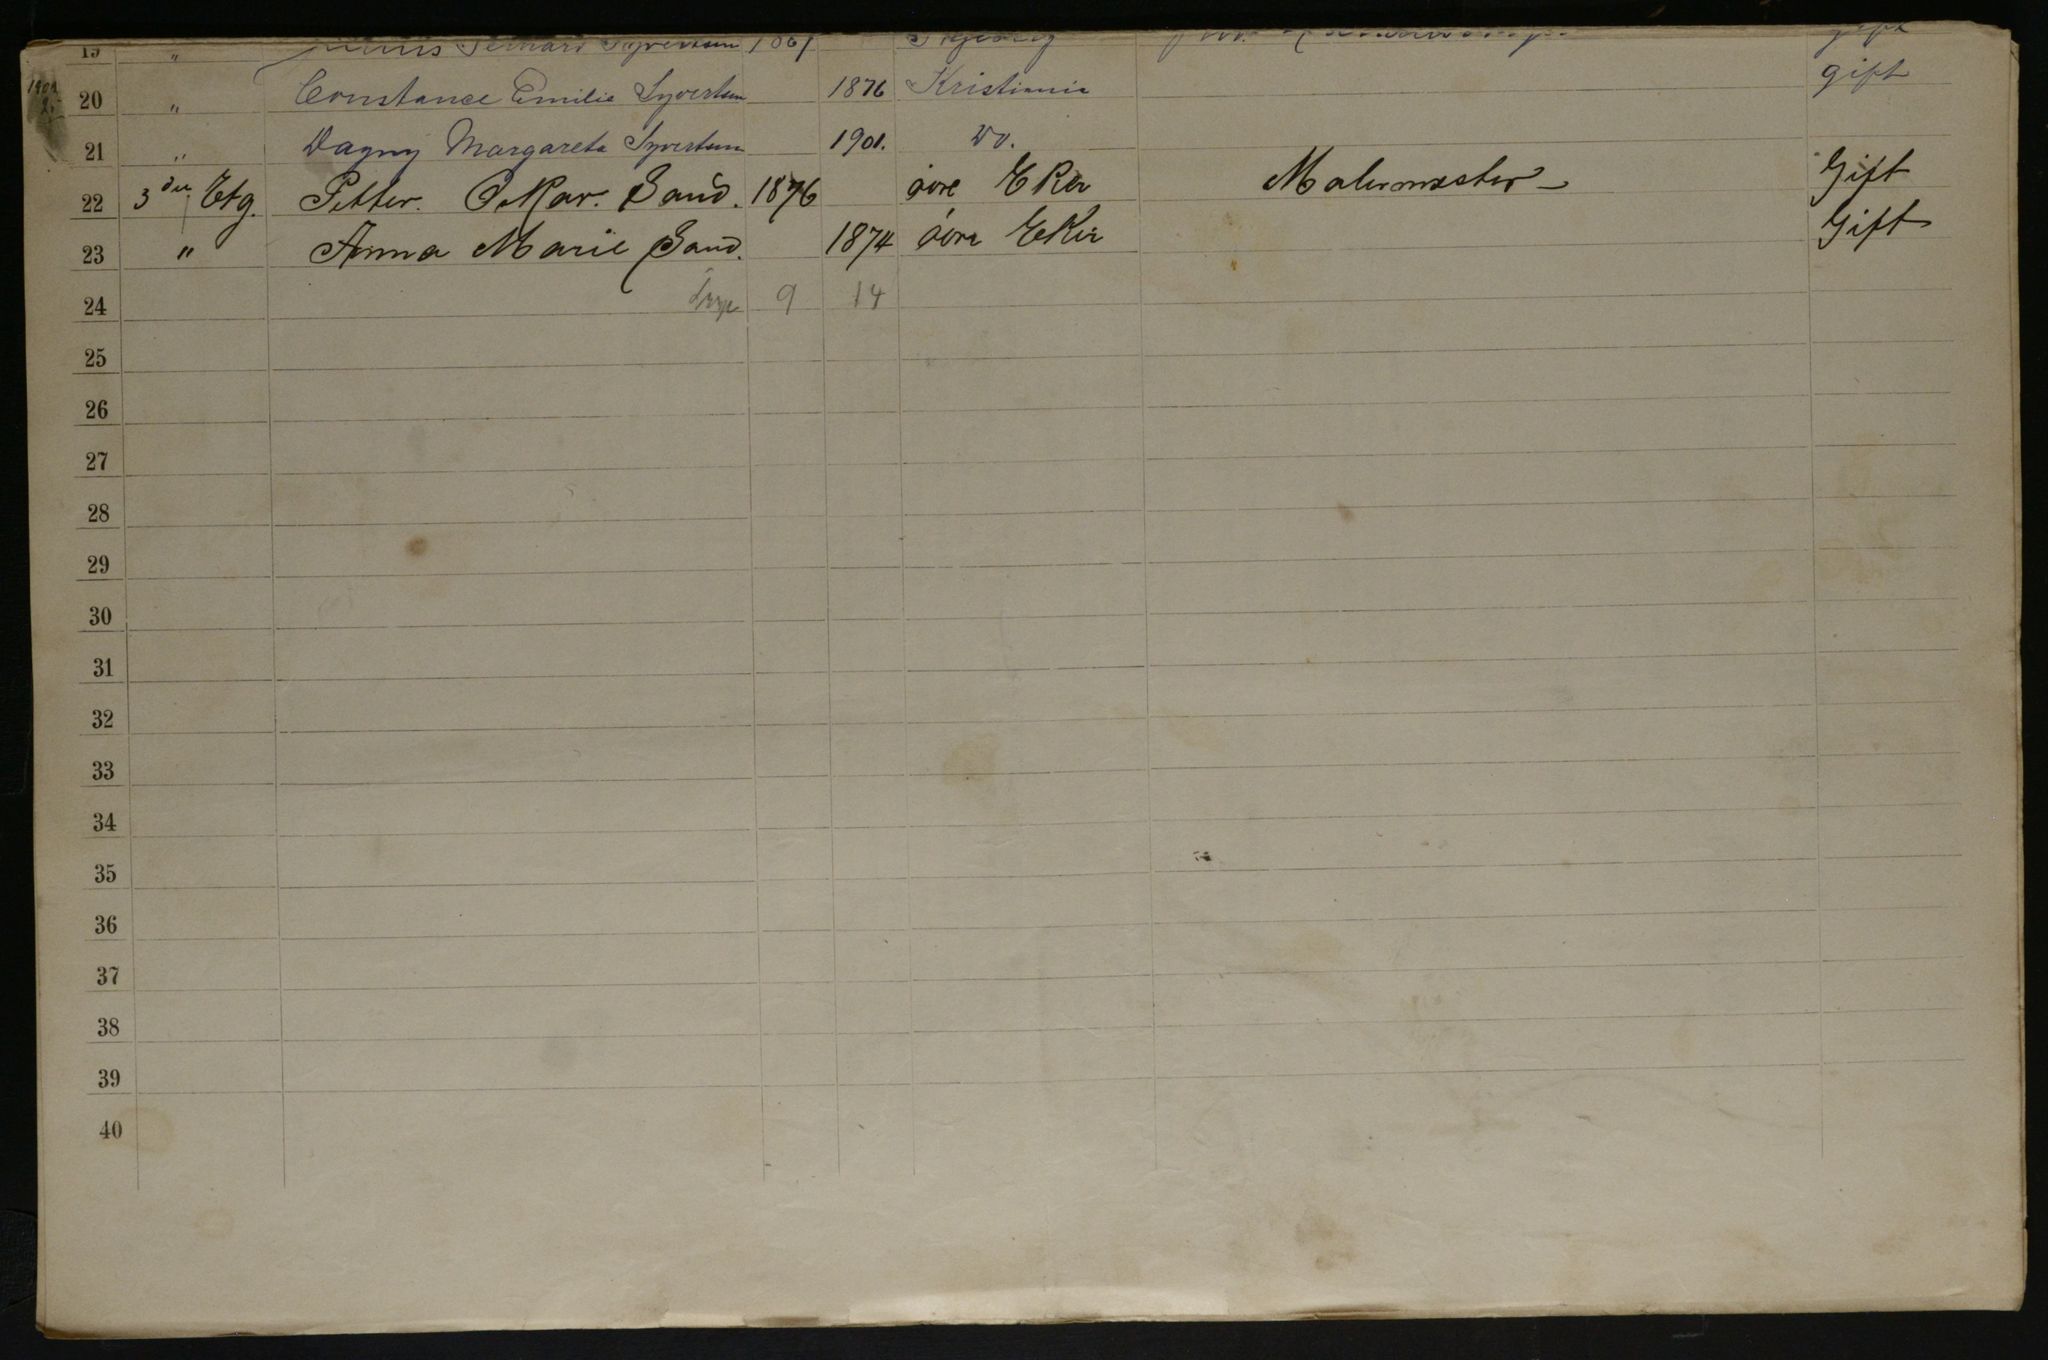 19 " Syvertsen
20 " Constance Emilie Syvertsen 1876 Kristiania gift
21 " Dagny Margareta Syvertsen 1901. Do.
22 3die Etg. Petter. Oskar. Sand. 1876 övre Eker Malermester — Gift
23 " Anna Marie Sand. 1874 övre Eker Gift
24 9 14
25
26
27
28
29
30
31
32
33
34
35
36
37
38
39
40